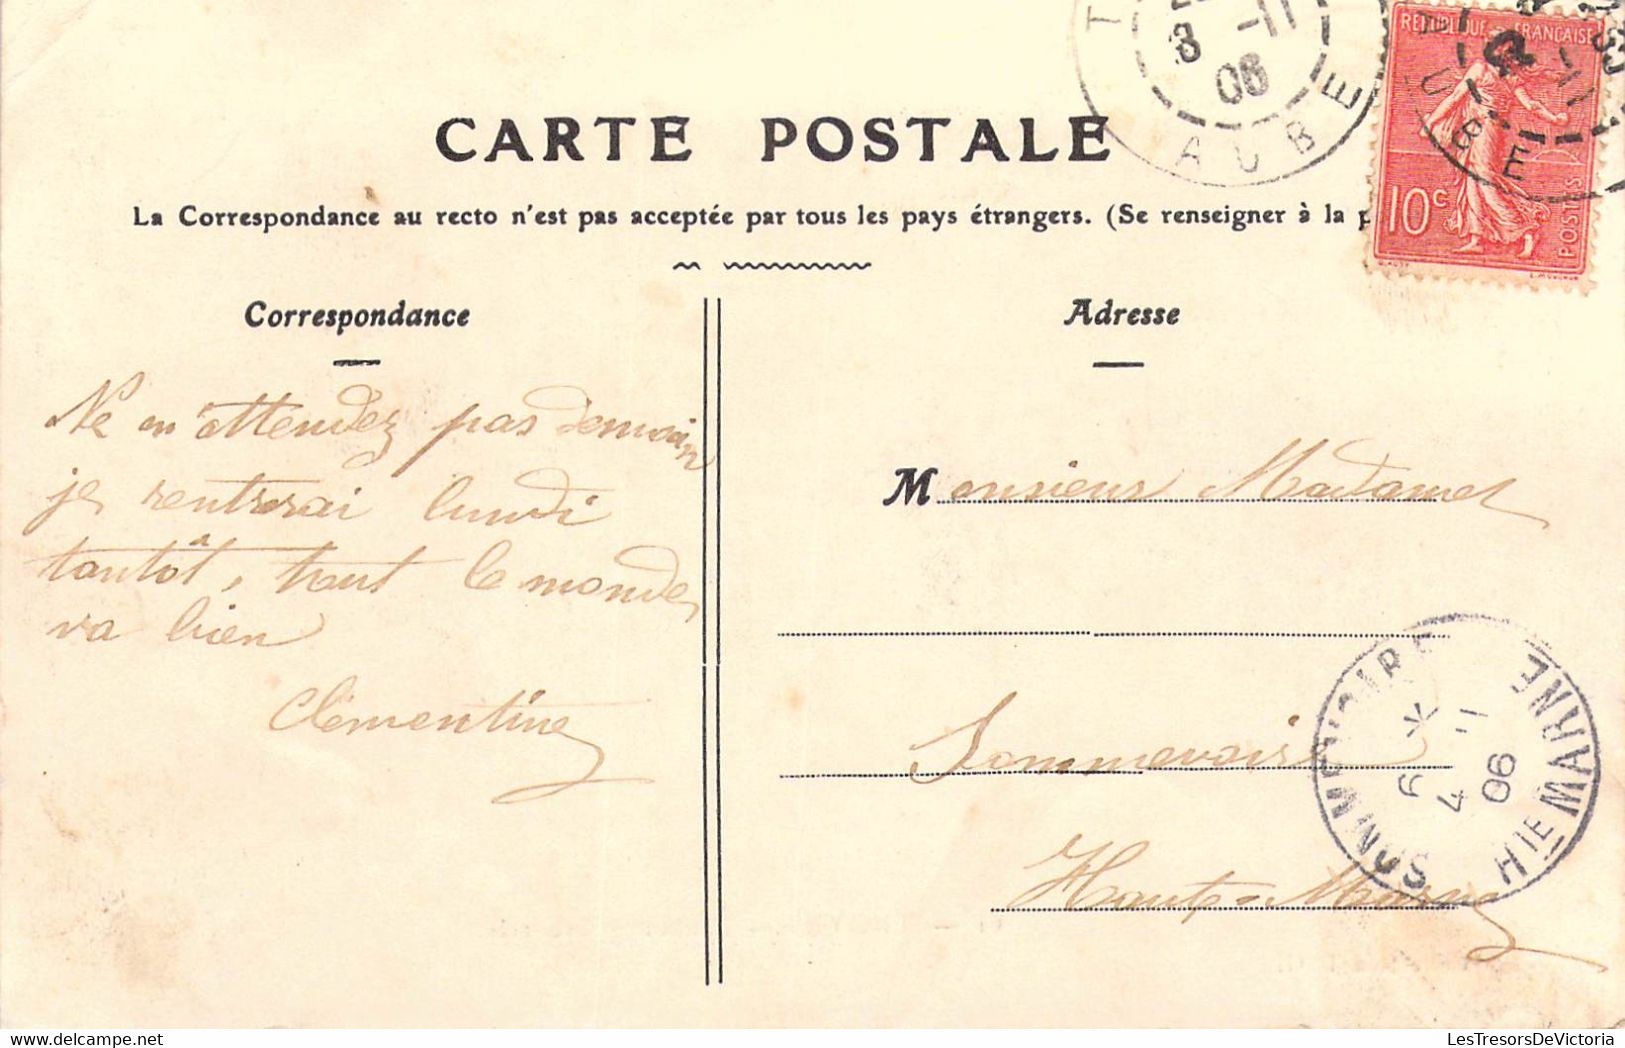 T
8 -11
06
AUBE
REPUBLIQUE FRANÇAISE
10c
POSTES
UBE
CARTE POSTALE
La Correspondance au recto n'est pas acceptée par tous les pays étrangers. (Se renseigner à la p
Correspondance
Adresse
Ne m'attendez pas demain
je rentrerai lundi
tantôt, tout le monde
va bien
Clémentine
Monsieur Madame
Sommevoire
Haute-Marne
SOMMEVOIRE
6 *
4 -11
06
HTE MARNE
LesTresorsDeVictoria